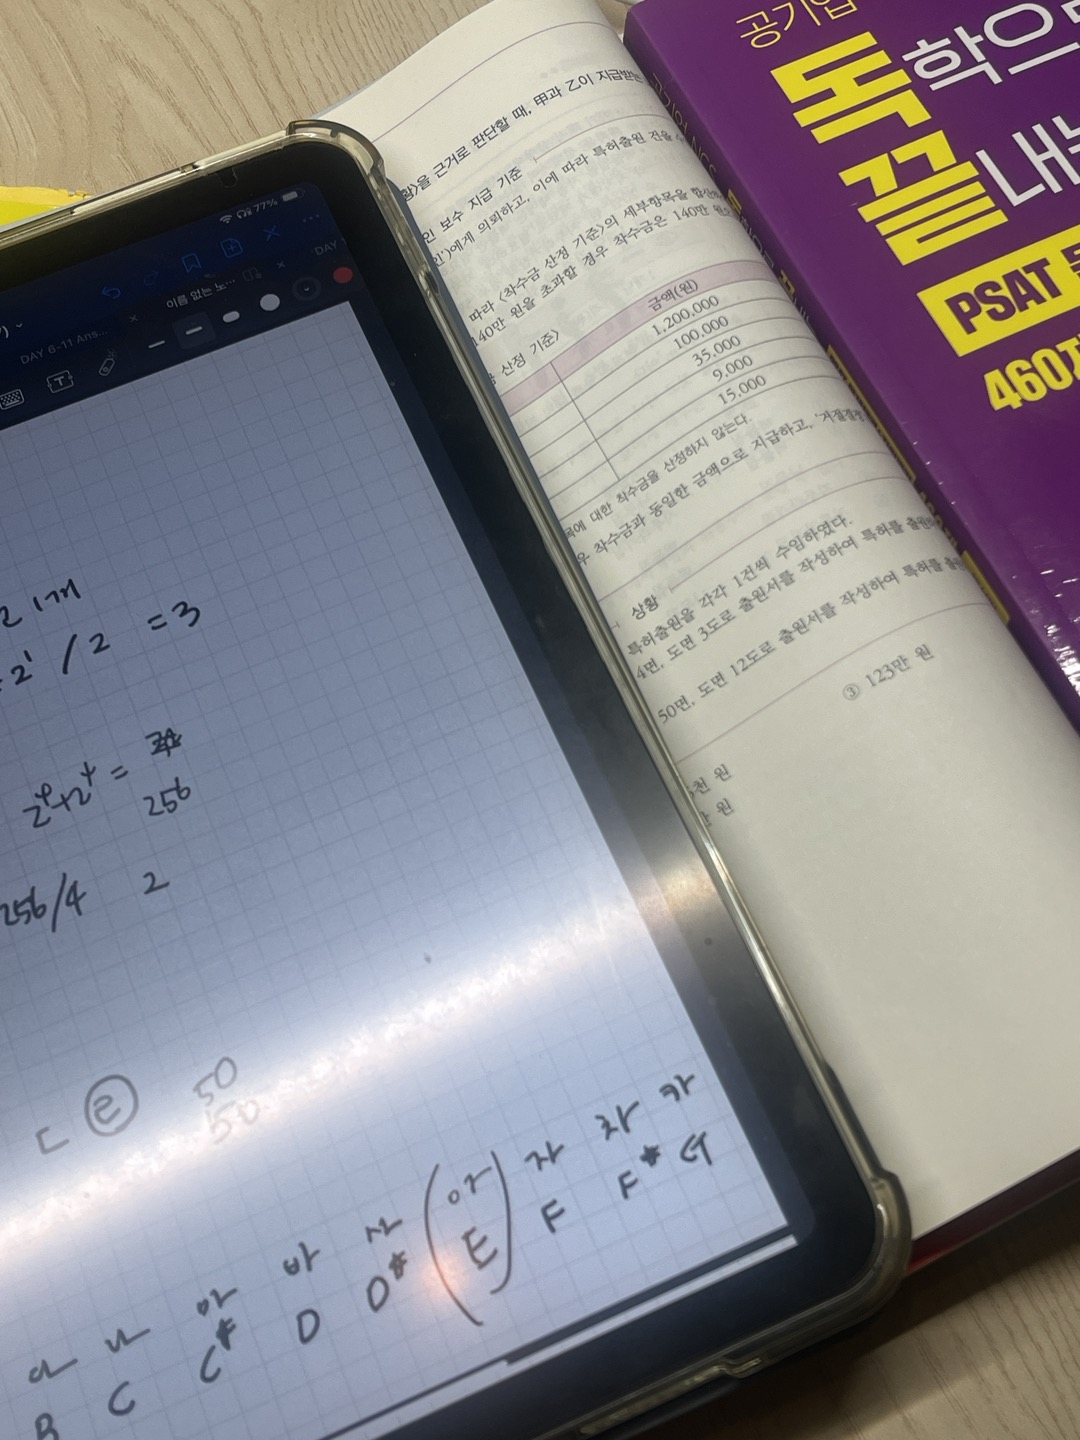 77%
DAY
이름 없는 노...
DAY 6-11 Ans...
2 1개
2¹ / 2 = 3
2⁴+2⁴ =
256
256/4 2
ㄷ ㄹ 50
50
바 사 (아) 자 차 카
B C C# D D# (E) F F# G
을 근거로 판단할 때, 甲과 乙이 지급받는
인 보수 지급 기준
에게 의뢰하고, 이에 따라 특허출원 건을
따라 〈착수금 산정 기준〉의 세부항목을 합산
140만 원을 초과할 경우 착수금은 140만 원
산정 기준〉
금액(원)
1,200,000
100,000
35,000
9,000
15,000
대한 착수금을 산정하지 않는다.
착수금과 동일한 금액으로 지급하고, '거절결정
상황
특허출원을 각각 1건씩 수임하였다.
4면, 도면 3도로 출원서를 작성하여 특허를 출원
50면, 도면 12도로 출원서를 작성하여 특허를 출원
③ 123만 원
천 원
원
공기업
독학으로
끝내는
PSAT
460제